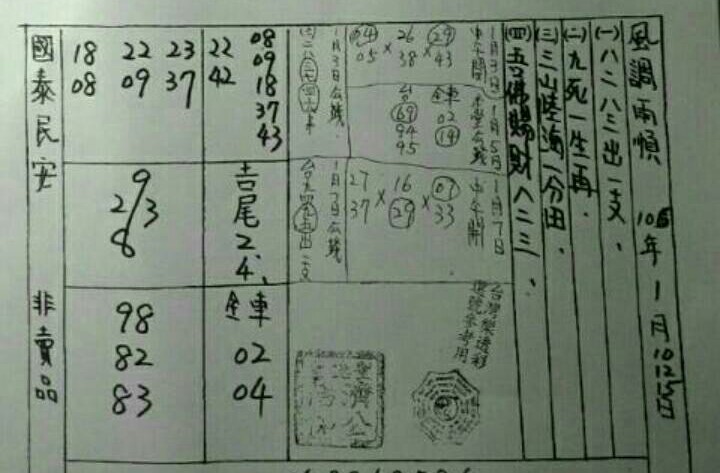 風調雨順 106年1月10.12.15日
(一)八二八三出一支、
(二)九死一生再、
(三)三山陸海一分田、
(四)五佛賜財八二三、
1月3日
中午開
29 43
×
26 38
×
04 05
1月3日公錢
1月5日
金車
02
19
台
69
94
95
1月7日
中午開
07 33
×
16 29
×
27 37
1月7日公錢
台灣樂透彩
選號參考用
濟公
22 42
08
09
18
37
43
吉尾
2
4、
金車
02
04
18 22 23
08 09 37
9
2/3
8
98
82
83
國泰民安 非賣品